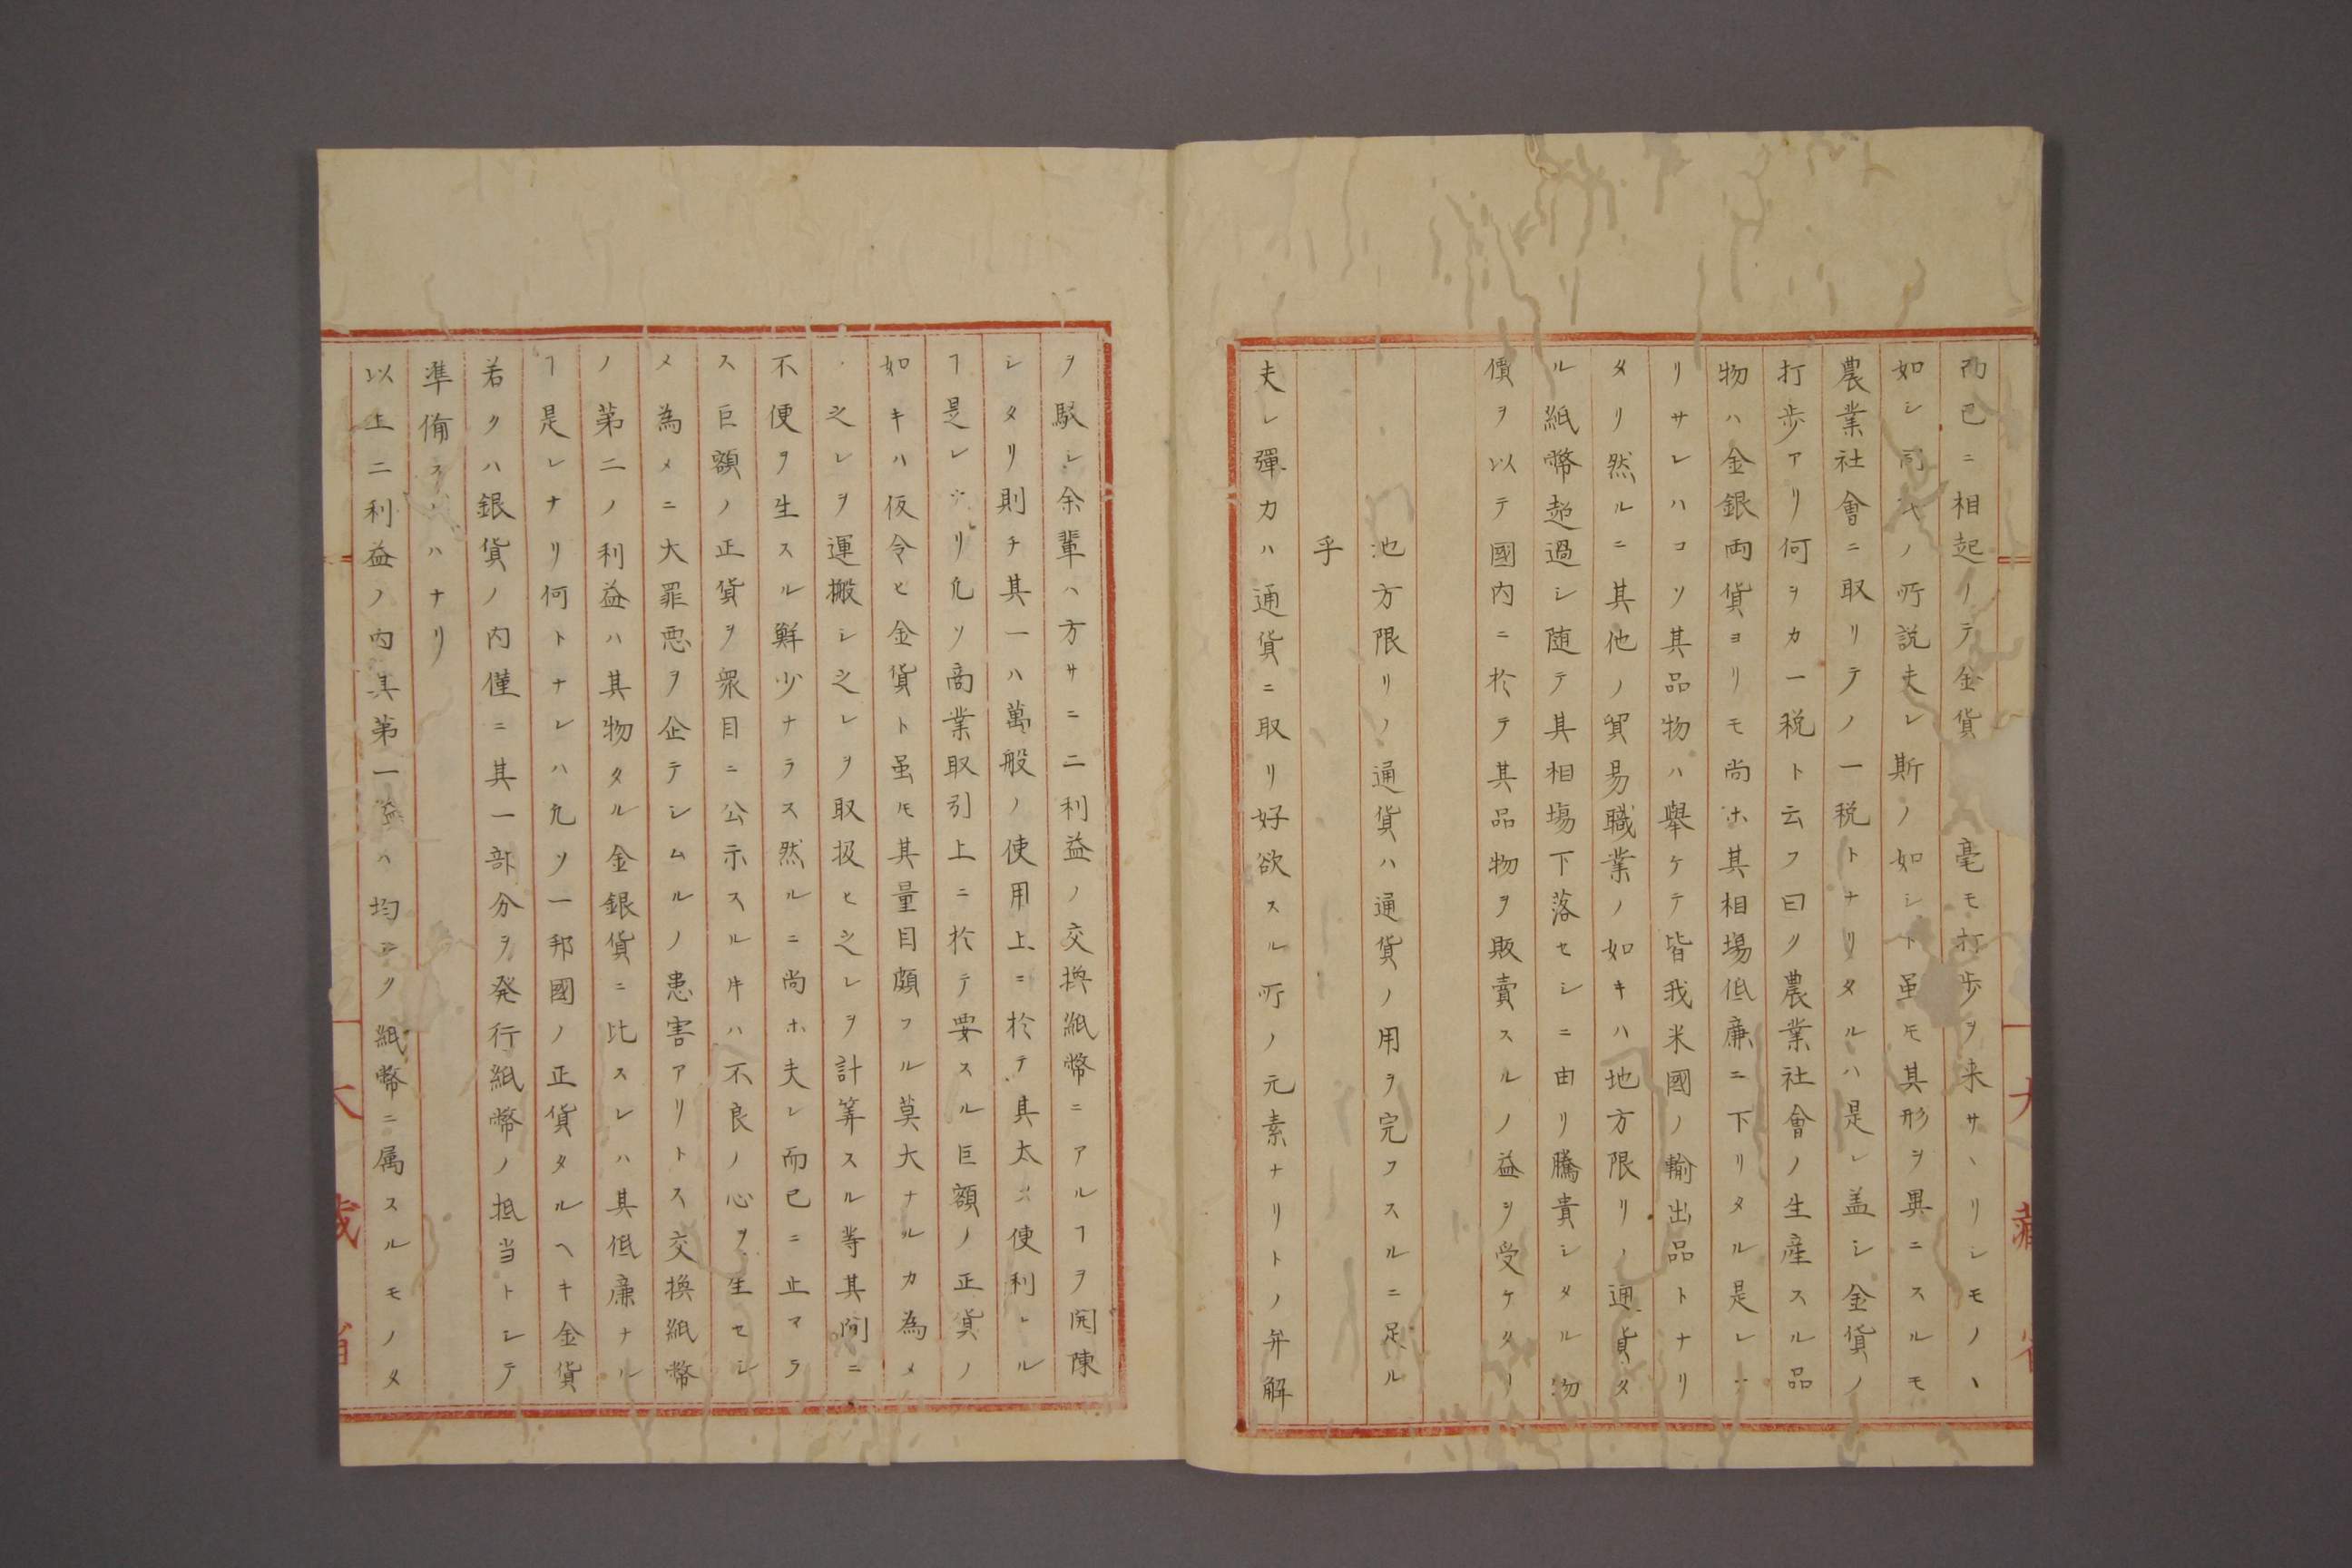 而已ニ相起リテ金貨 毫モ打歩ヲ来サヽリシモノヽ
如シ同氏ノ所説夫レ斯ノ如シト虽𪜈其形ヲ異ニスルモ
農業社會ニ取リテノ一税トナリタルハ是レ盖シ金貨ノ
打歩アリ何ヲカ一税ト云フ曰ク農業社會ノ生産スル品
物ハ金銀両貨ヨリモ尚ホ其相場低廉ニ下リタル是レナ
リサレハコソ其品物ハ舉ケテ皆我米國ノ輸出品トナリ
タリ然ルニ其他ノ貿易職業ノ如キハ地方限リノ通貨タ
ル紙幣超過シ随テ其相場下落セシニ由リ騰貴シタル物
價ヲ以テ國内ニ於テ其品物ヲ販賣スルノ益ヲ受ケタリ
池方限リノ通貨ハ通貨ノ用ヲ完フスルニ足ル
乎
夫レ彈力ハ通貨ニ取リ好欲スル所ノ元素ナリトノ弁解
ヲ駁シ余輩ハ方サニ二利益ノ交換紙幣ニアルヿヲ開陳
シタリ則チ其一ハ萬般ノ使用上ニ於テ其太タ便利ナル
ヿ是レナリ凢ソ商業取引上ニ於テ要スル巨額ノ正貨ノ
如キハ仮令ヒ金貨ト虽𪜈其量目頗フル莫大ナルカ為メ
之レヲ運搬シ之レヲ取扱ヒ之レヲ計筭スル等其間ニ
不便ヲ生スル鮮少ナラス然ルニ尚ホ夫レ而已ニ止マラ
ス巨額ノ正貨ヲ衆目ニ公示スル𬼀ハ不良ノ心ヲ生セシ
メ為メニ大罪悪ヲ企テシムルノ患害アリトス交換紙幣
ノ第二ノ利益ハ其物タル金銀貨ニ比スレハ其低廉ナル
ヿ是レナリ何トナレハ凢ソ一邦國ノ正貨タルヘキ金貨
若クハ銀貨ノ内僅ニ其一部分ヲ発行紙幣ノ抵当トシテ
準備スレハナリ
以上二利益ノ内其第一益ハ均シク紙幣ニ属スルモノタ
大藏省
大藏省